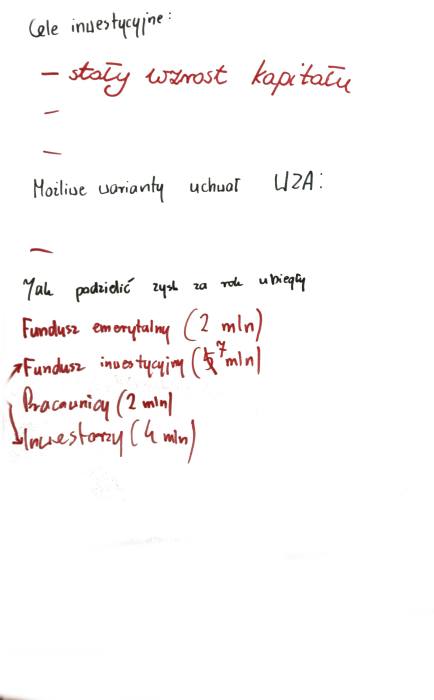 Cele inwestycyjne:
- stały wzrost kapitału
-
-
Możliwe warianty uchwał WZA:
-
Jak podzielić zysk za rok ubiegły
Fundusz emerytalny (2 mln)
Fundusz inwestycyjny (5 7 mln)
Pracownicy (2 mln)
Inwestorzy (4 mln)